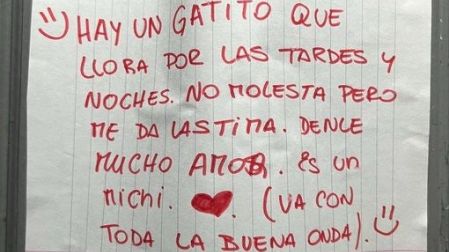 HAY UN GATITO QUE
LLORA POR LAS TARDES Y
NOCHES. NO MOLESTA PERO
ME DA LASTIMA. DENLE
MUCHO AMOR. ES UN
MICHI. ❤. (VA CON
TODA LA BUENA ONDA).